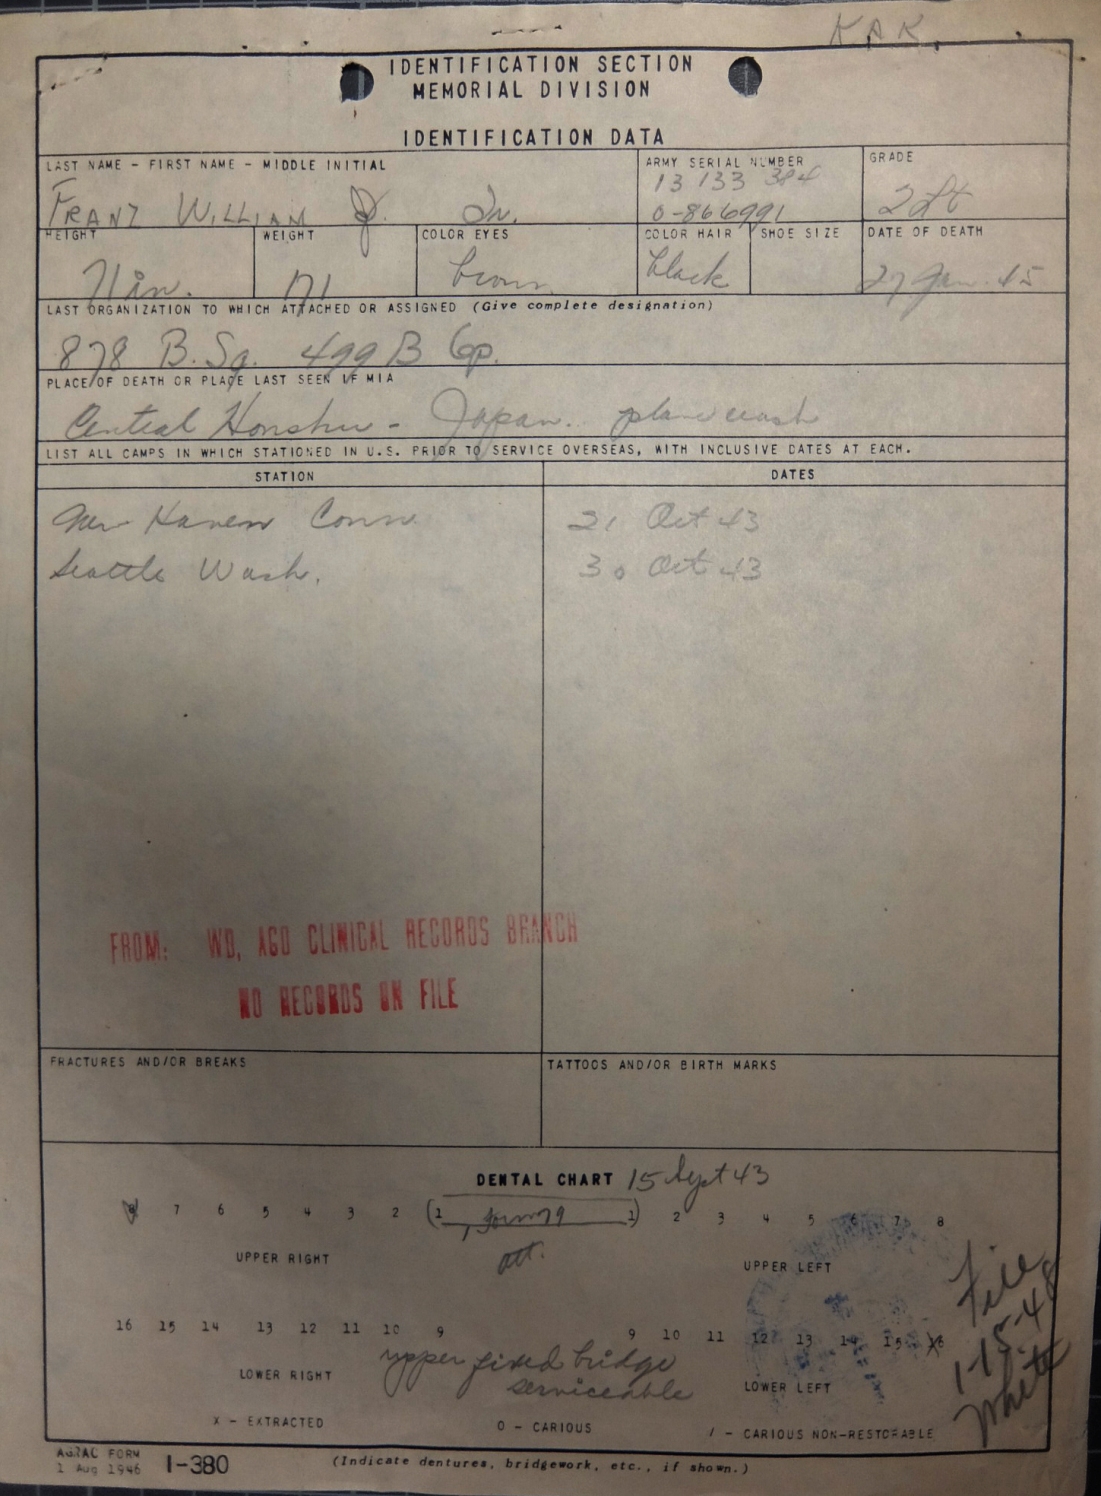 K A K.
IDENTIFICATION SECTION
MEMORIAL DIVISION
IDENTIFICATION DATA
LAST NAME - FIRST NAME - MIDDLE INITIAL
ARMY SERIAL NUMBER
GRADE
13 133 384
FRANZ WILLIAM J. Jr.
0-866991
2 Lt
HEIGHT
WEIGHT
COLOR EYES
COLOR HAIR
SHOE SIZE
DATE OF DEATH
71 in.
171
brown
black
27 Jan. 45
LAST ORGANIZATION TO WHICH ATTACHED OR ASSIGNED (Give complete designation)
878 B. Sq. 499 B Gp.
PLACE OF DEATH OR PLACE LAST SEEN IF MIA
Central Honshu - Japan. plane crash
LIST ALL CAMPS IN WHICH STATIONED IN U.S. PRIOR TO SERVICE OVERSEAS, WITH INCLUSIVE DATES AT EACH.
STATION
DATES
New Haven Conn
21 Oct 43
Seattle Wash.
30 Oct 43
FROM: WD, AGO CLINICAL RECORDS BRANCH
NO RECORDS ON FILE
FRACTURES AND/OR BREAKS
TATTOOS AND/OR BIRTH MARKS
DENTAL CHART 15 Sept 43
8 7 6 5 4 3 2 (1 1) 2 3 4 5 6 7 8
att.
UPPER RIGHT
UPPER LEFT
16 15 14 13 12 11 10 9 9 10 11 12 13 14 15 16
upper fixed bridge
serviceable
LOWER RIGHT
LOWER LEFT
File
1-15-48
White
X - EXTRACTED
O - CARIOUS
/ - CARIOUS NON-RESTORABLE
FORM
1 Aug 1946
1-380
(Indicate dentures, bridgework, etc., if shown.)